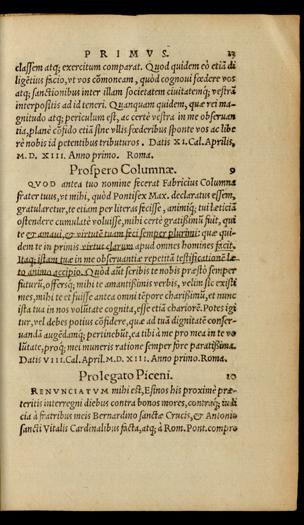 PRIMVS. 23
classem atq; exercitum comparat. Quod quidem eò etiã di
ligẽtius facio, vt vos cõmoneam, quòd cognoui fœdere vos
atq; sanctionibus inter illam societatem ciuitatemq; vestrã
interpositis ad id teneri. Quanquam quidem, quæ rei ma-
gnitudo atq; periculum est, ac certè vestra in me obseruan
tia, planè cõfido etiã sine vllis fœderibus sponte vos ac libe
rè nobis id petentibus tributuros. Datis XI. Cal. Aprilis,
M. D. XIII. Anno primo. Roma.
Prospero Columnæ. 9
QVOD antea tuo nomine fecerat Fabricius Columna
frater tuus, vt mihi, quòd Pontifex Max. declaratus essem,
gratularetur, te etiam per literas fecisse, animiq; tui lęticiã
ostendere cumulatè voluisse, mihi certè gratissimũ fuit, qui
te & amaui, & virtutẽ tuam feci semper plurimi: quæ qui-
dem te in primis virtus clarum apud omnes homines facit.
Itaq; istam tuã in me obseruantiæ repetitã testificationẽ læ-
to animo accipio. Quòd aũt scribis te nobis præstò semper
futurũ, offersq; mihi te amantissimis verbis, velim sic existi
mes, mihi te et fuisse antea omni tẽpore charissimũ, et nunc
ista tua in nos volũtate cognita, esse etiã chariorẽ. Potes igi
tur, vel debes potius cõfidere, quæ ad tuã dignitatẽ conser-
uandã augẽdamq; pertinebũt, ea tibi à me pro mea in te vo
lũtate, proq; mei muneris ratione semper fore paratissima.
Datis VIII. Cal. April. M. D. XIII. Anno primo. Roma.
Prolegato Piceni. 10
RENVNCIATVM mihi est, Esinos his proximè præ-
teritis interregni diebus contra bonos mores, contraq; iudi
cia à fratribus meis Bernardino sanctæ Crucis, & Antonio
sancti Vitalis Cardinalibus facta, atq; à Rom. Pont. compro